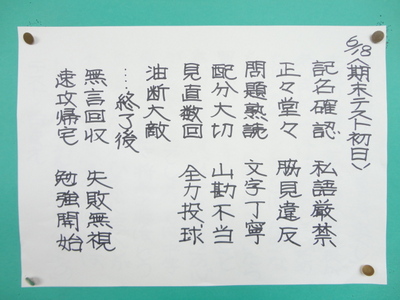 6/18〈期末テスト初日〉
記名確認 私語厳禁
正々堂々 脇見違反
問題熟読 文字丁寧
配分大切 山勘不当
見直数回 全力投球
油断大敵
……終了後
無言回収 失敗無視
速攻帰宅 勉強開始